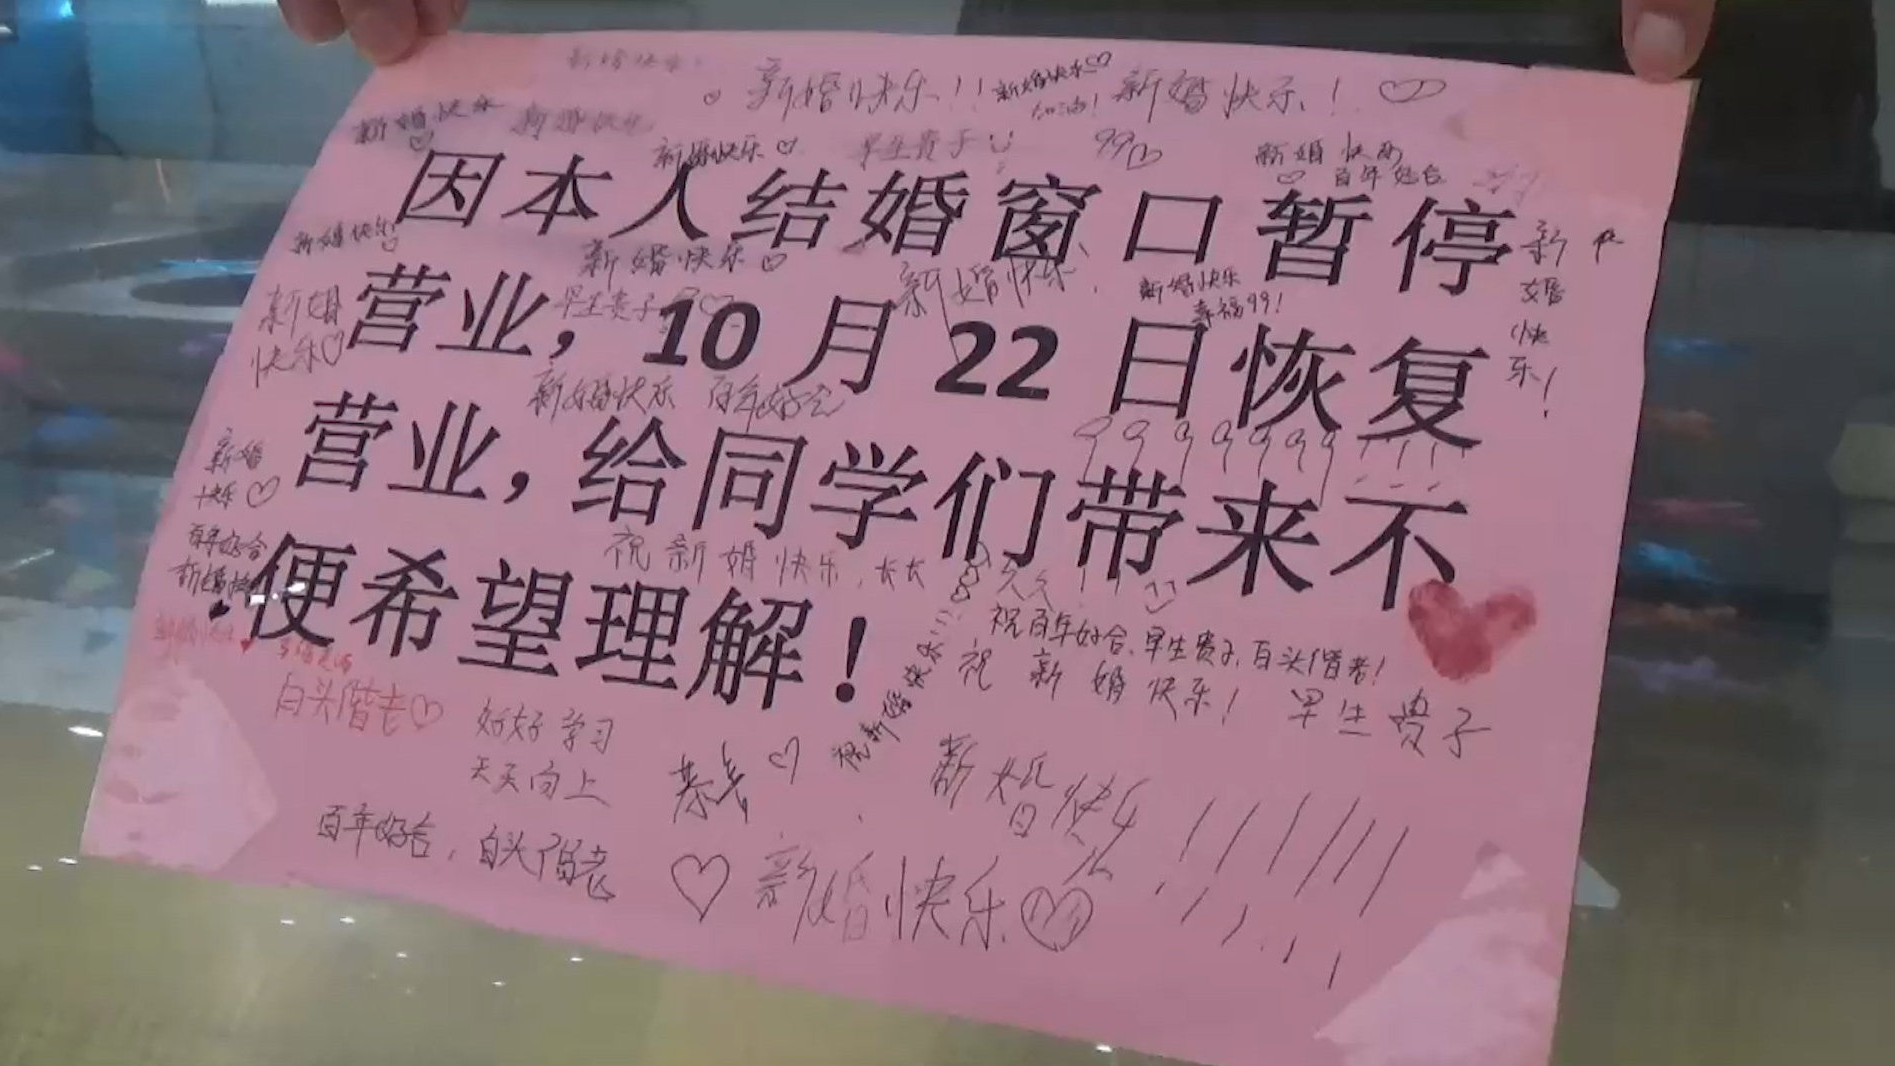 新婚快乐!!
新婚快乐
加油!
新婚快乐!
新婚快乐
新婚快乐
新婚快乐
早生贵子
99
新婚快乐
百年好合
因本人结婚窗口暂停
新婚快乐
新婚快乐
新婚快乐!
新婚快乐
幸福99!
新婚快乐!
营业，10月22日恢复
新婚
快乐
早生贵子
新婚快乐 百年好合
9999999!!!!
营业，给同学们带来不
新婚
快乐
祝新婚快乐，
久久!!
百年好合
新婚快乐
便希望理解！
祝百年好合、早生贵子、百头偕老!
祝新婚快乐! 早生贵子
祝新婚快乐!!!
新婚快乐
白头偕老
好好学习
天天向上
新婚快乐!!!!!!
百年好合，白头偕老
新婚快乐